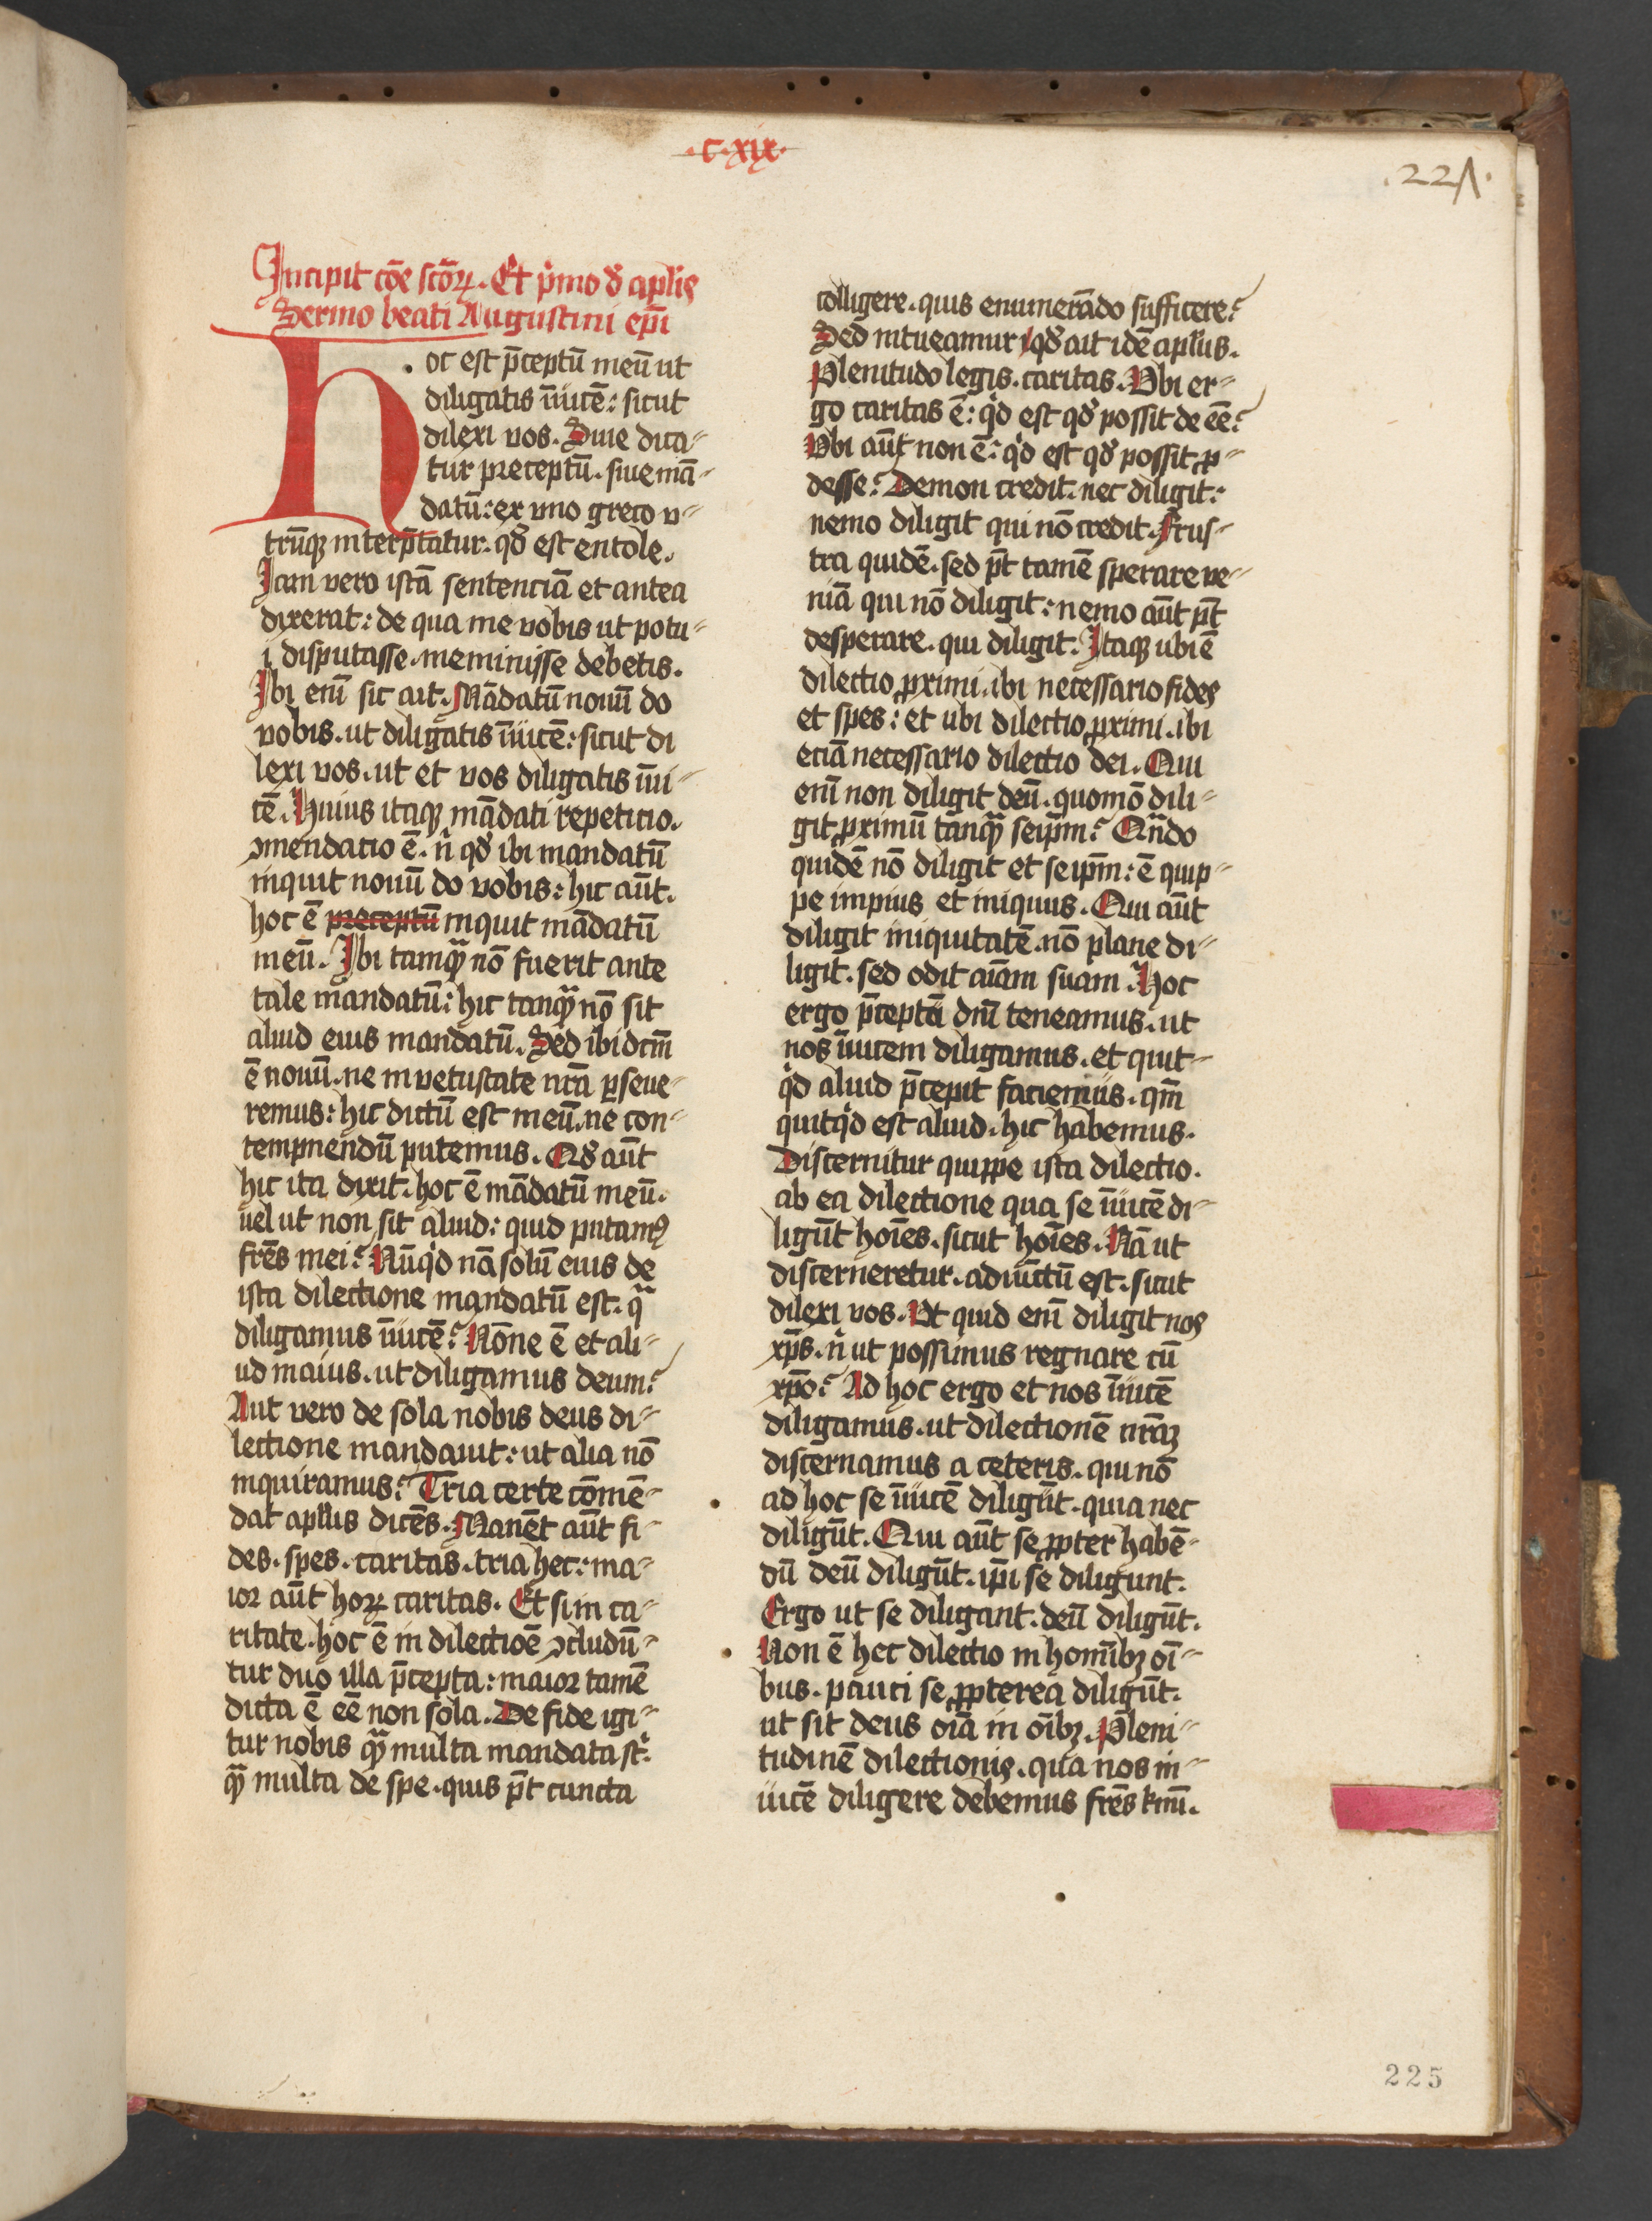 .c.xix.
.221.
Incipit cōe scōꝝ. Et p̾mo đ apl̾is
Sermo beati Augustini ep̄i
Hoc est p̄ceptū meū ut
diligatis īuicē: sicut
dilexi vos. Siue dica⸗
tur preceptū. siue mā⸗
datū: ex vno greco v⸗
trūqꝫ interp̄tatur. qđ est entole.
Iam vero istā sentenciā et antea
dixerat: de qua me vobis ut potu⸗
i disputasse. meminisse debetis.
Ibi eni̅ sic ait. Mādatū nouū do
vobis. ut diligatis īuicē: sicut di
lexi vos. ut et vos diligatis īui⸗
cē. Huius itaqꝫ mādati repeticio.
ꝯmendacio ē. n̾ qđ ibi mandatū
inquit nouū do vobis: hic aūt.
hoc ē preceptū inquit mādatū
meū. Ibi tamqᷓ nō fuerit ante
tale mandatū: hic tanqᷓ nō sit
aliud eius mandatū. Sed ibi dcm̄
ē nouū. ne in vetustate nr̄a ꝑseue⸗
remus: hic dictū est meū. ne con⸗
tempnendū putemus. Qđ aūt
hic ita dixit. hoc ē mādatū meū.
uel ut non sit aliud: quid putamꝰ
fr̄es mei? Nūqͥd nā solū eius de
ista dilectione mandatū est. qᷓ
diligamus īuicē? Nōne ē et ali⸗
ud maius. ut diligamus deum?
Aut vero de sola nobis deus di⸗
lectione mandauit: ut alia nō
inquiramus? Tria certe cōmē⸗
dat apl̾us dicēs. Manēt aūt fi⸗
des. spes. caritas. tria hec: ma⸗
ior aūt horꝝ caritas. Et si in ca⸗
ritate. hoc ē in dilectioē ꝯcludū⸗
tur duo illa p̄cepta: maior tamē
dicta ē eē non sola. De fide igi⸗
tur nobis qᷓ multa mandata st̾.
qᷓ multa de spe. quis p̄t cuncta
colligere. quis enumerādo sufficere?
Sed intueamur qđ ait idē apl̾us.
Plenitudo legis. caritas. Vbi er⸗
go caritas ē: qͥd est qđ possit de eē?
Vbi aūt non ē: qͥd est qđ possit ꝓ⸗
desse? Demon credit. nec diligit:
nemo diligit qui nō credit. Frus⸗
tra quidē. sed p̄t tamē sperare ve⸗
niā qui nō diligit: nemo aūt p̄t
desperare. qui diligit. Itaqꝫ ubi ē
dilectio ꝓximi. ibi necessario fides
et spes: et ubi dilectio ꝓximi. ibi
eciā necessario dilectio dei. Qui
eni̅ non diligit deū. quomō dili⸗
git ꝓximū tanqᷓ seip̄m? Qn̄do
quidē nō diligit et seip̄m: ē quip⸗
pe impius et iniquus. Qui aūt
diligit iniquitatē. nō plane di⸗
ligit. sed odit aīam suam. Hoc
ergo p̄ceptū dnī teneamus. ut
nos īuicem diligamus. et quic⸗
qͥd aliud p̄cepit faciemus. qm̄
quicqͥd est aliud. hic habemus.
Discernitur quippe ista dilectio.
ab ea dilectione qua se īuicē di⸗
ligūt hoīes. sicut hoīes. Nā ut
discerneretur. adiūctū est. sicut
dilexi vos. Vt quid eni̅ diligit nos
xp̄s. n̾ ut possimus regnare cū
xp̄o? Ad hoc ergo et nos īuicē
diligamus. ut dilectionē nr̄aꝫ
discernamus a ceteris. qui nō
ad hoc se īuicē diligūt. quia nec
diligūt. Qui aūt se ꝓpter habē⸗
dū deū diligūt. ip̄i se diligunt.
Ergo ut se diligant. deū diligūt.
Non ē hec dilectio in homībꝫ oī⸗
bus. pauci se ꝓpterea diligūt.
ut sit deus oīa in oībꝫ. Pleni⸗
tudinē dilectionis. qua nos in⸗
uicē diligere debemus fr̄es kmī.
225